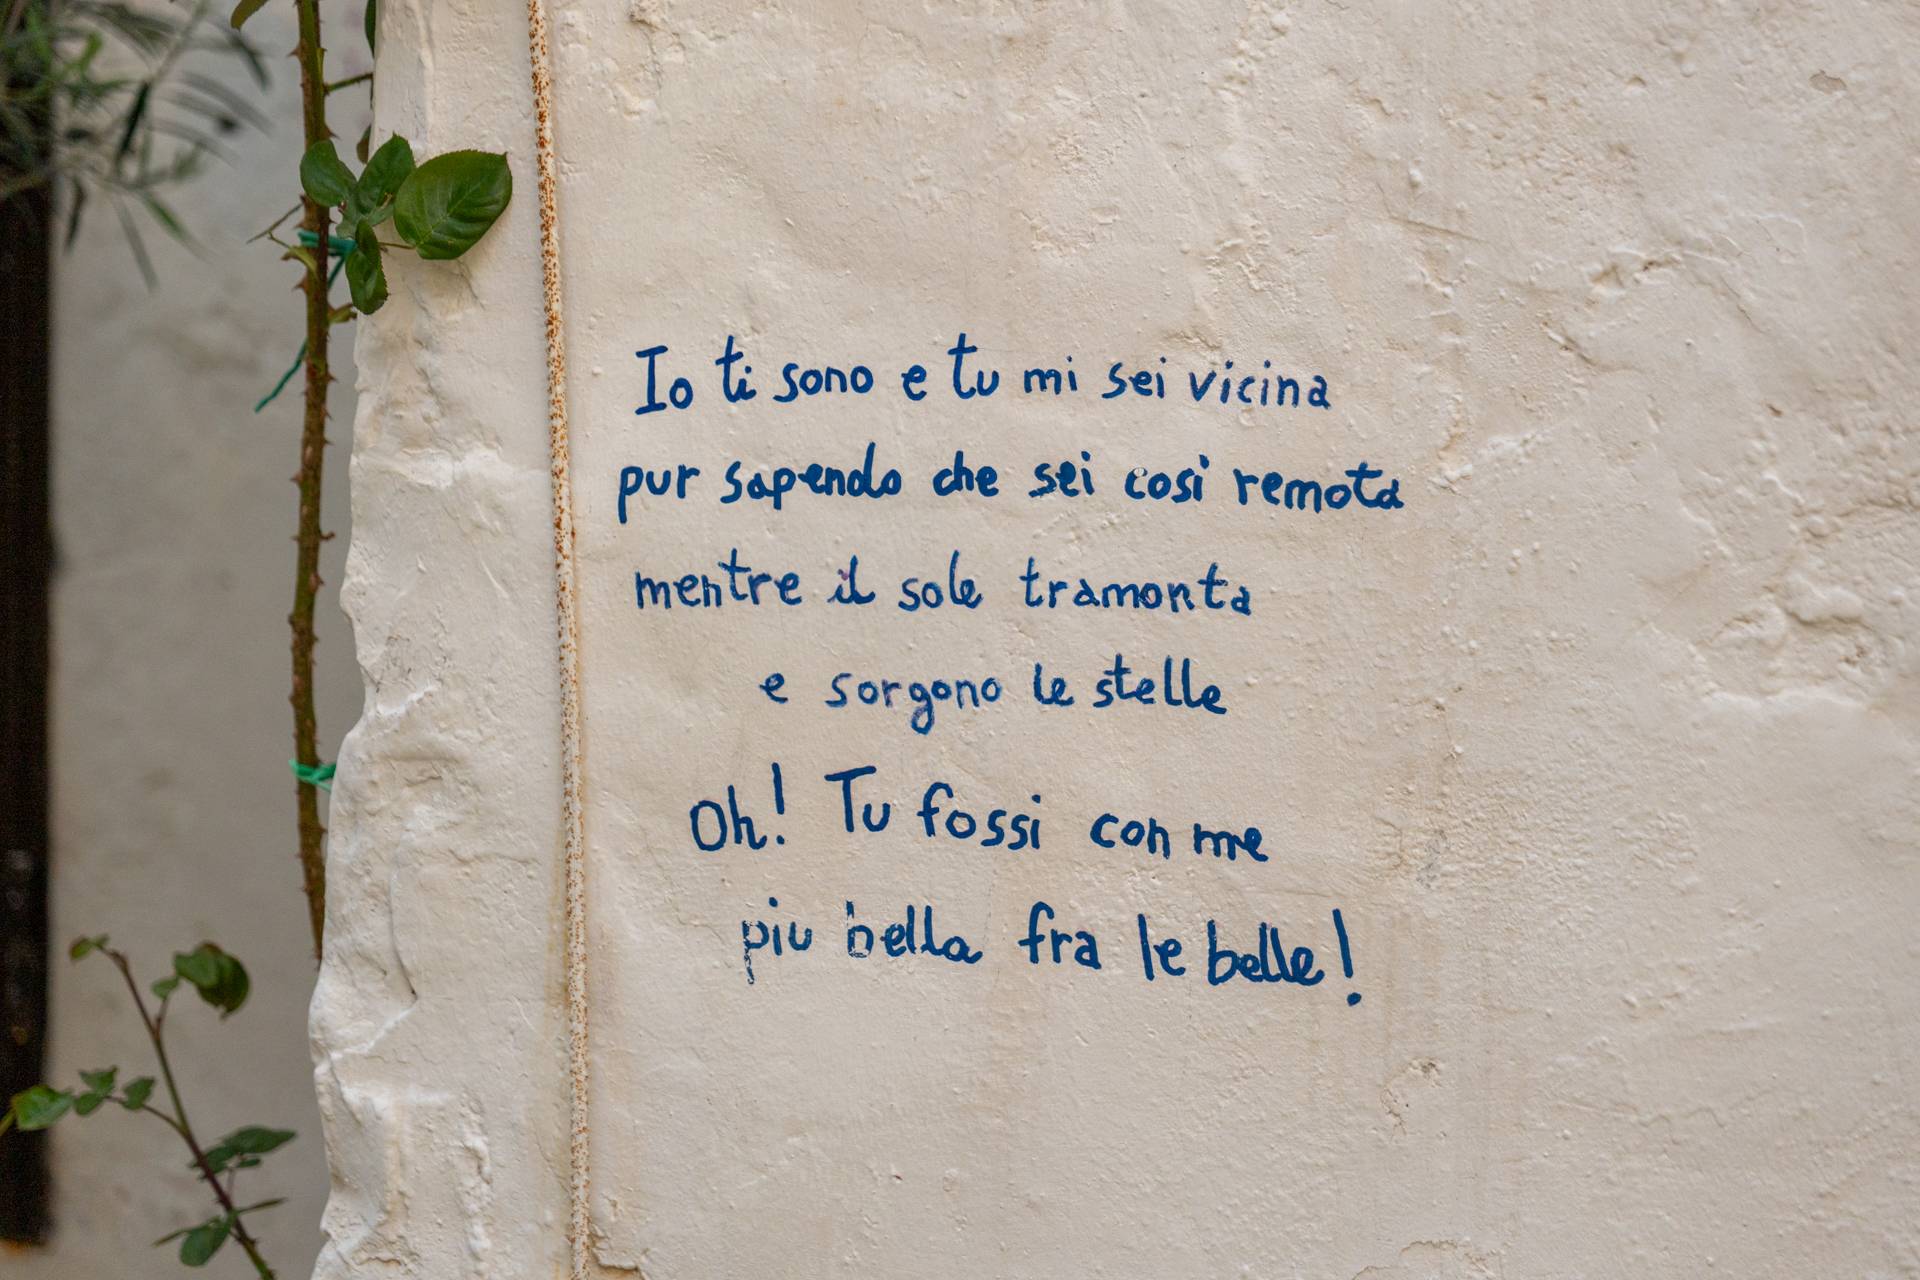 Io ti sono e tu mi sei vicina
pur sapendo che sei così remota
mentre il sole tramonta
e sorgono le stelle
Oh! Tu fossi con me
piu bella fra le belle!